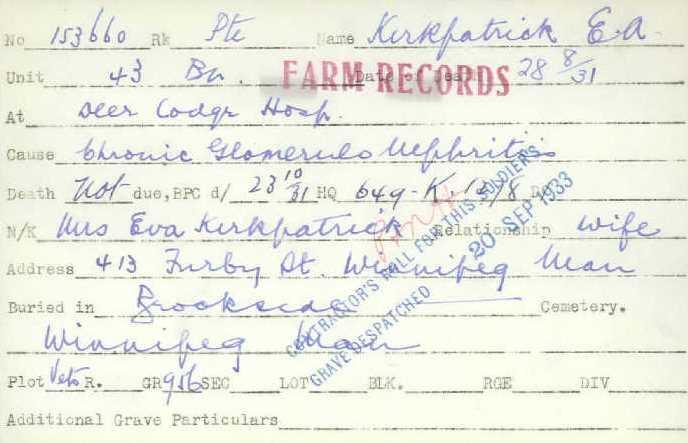 No 153660 Rk Pte Name Kirkpatrick E A
Unit 43 Bn. Date of Death 28 8/31
FARM RECORDS
At Deer Lodge Hosp.
Cause Chronic Glomerulo Nephritis
Death Not due, BPC d/ 23 10/31 HQ 649-K.
N/K Mrs Eva Kirkpatrick Relationship Wife
Address 413 Furby St. Winnipeg Man
Buried in Brookside Cemetery.
Winnipeg Man
Plot Vets R. GR 956 SEC LOT BLK. RGE DIV
Additional Grave Particulars
CONTRACTOR'S ROLL FOR THIS SOLDIER'S
GRAVE DESPATCHED 20 SEP 1933